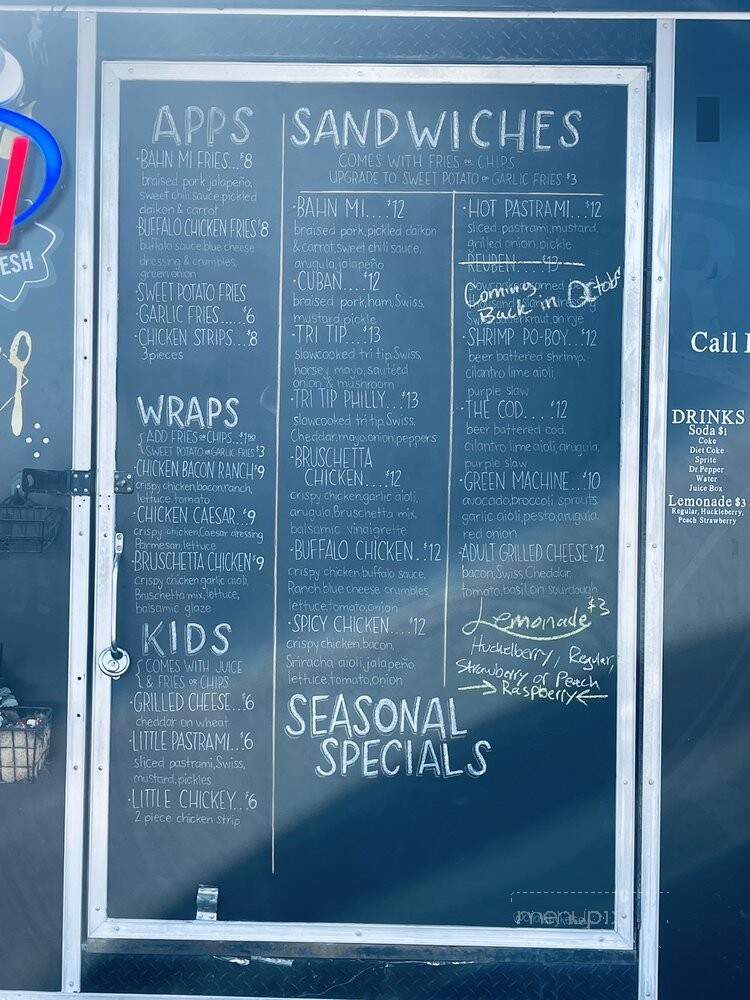 ESH
APPS
·BAHN MI FRIES...$8
braised pork, jalapeño,
sweet chili sauce, pickled
daikon & carrot
BUFFALO CHICKEN FRIES $8
buffalo sauce, blue cheese
dressing & crumbles,
green onion
·SWEET POTATO FRIES
·GARLIC FRIES......$6
·CHICKEN STRIPS...$8
3 pieces
WRAPS
{ADD FRIES OR CHIPS...$1.50
SWEET POTATO OR GARLIC FRIES $3
·CHICKEN BACON RANCH $9
crispy chicken, bacon, ranch,
lettuce, tomato
·CHICKEN CAESAR...$9
crispy chicken, Caesar dressing
Parmesan, lettuce
BRUSCHETTA CHICKEN $9
crispy chicken, garlic aioli,
Bruschetta mix, lettuce,
balsamic glaze
KIDS
{COMES WITH JUICE
& FRIES OR CHIPS
·GRILLED CHEESE...$6
cheddar on wheat
·LITTLE PASTRAMI...$6
sliced pastrami, Swiss,
mustard, pickles
·LITTLE CHICKEY...$6
2 piece chicken strip
SANDWICHES
COMES WITH FRIES OR CHIPS
UPGRADE TO SWEET POTATO OR GARLIC FRIES $3
·BAHN MI....$12
braised pork, pickled daikon
& carrot, sweet chili sauce,
arugula, jalapeño
·CUBAN....$12
braised pork, ham, Swiss,
mustard, pickle
·TRI TIP...$13
slowcooked tri tip, Swiss,
horsey mayo, sautéed
onion & mushroom
·TRI TIP PHILLY...$13
slowcooked tri tip, Swiss,
Cheddar, mayo, onion, peppers
·BRUSCHETTA
CHICKEN....$12
crispy chicken, garlic aioli,
arugula, Bruschetta mix,
balsamic vinaigrette
·BUFFALO CHICKEN..$12
crispy chicken, buffalo sauce,
Ranch, blue cheese crumbles,
lettuce, tomato, onion
·SPICY CHICKEN....$12
crispy chicken, bacon,
Sriracha aioli, jalapeño,
lettuce, tomato, onion
·HOT PASTRAMI...$12
sliced pastrami, mustard,
grilled onion, pickle
·REUBEN....$13
Coming
Back in October
on rye
·SHRIMP PO-BOY...$12
beer battered shrimp,
cilantro lime aioli,
purple slaw
·THE COD.....$12
beer battered cod,
cilantro lime aioli, arugula,
purple slaw
·GREEN MACHINE...$10
avocado, broccoli sprouts,
garlic aioli, pesto, arugula,
red onion
·ADULT GRILLED CHEESE $12
bacon, Swiss, Cheddar,
tomato, basil on sourdough
Lemonade $3
Huckelberry, Regular,
Strawberry or Peach
→Raspberry←
SEASONAL
SPECIALS
Call
DRINKS
Soda $1
Coke
Diet Coke
Sprite
Dr Pepper
Water
Juice Box
Lemonade $3
Regular, Huckleberry,
Peach Strawberry
menupix